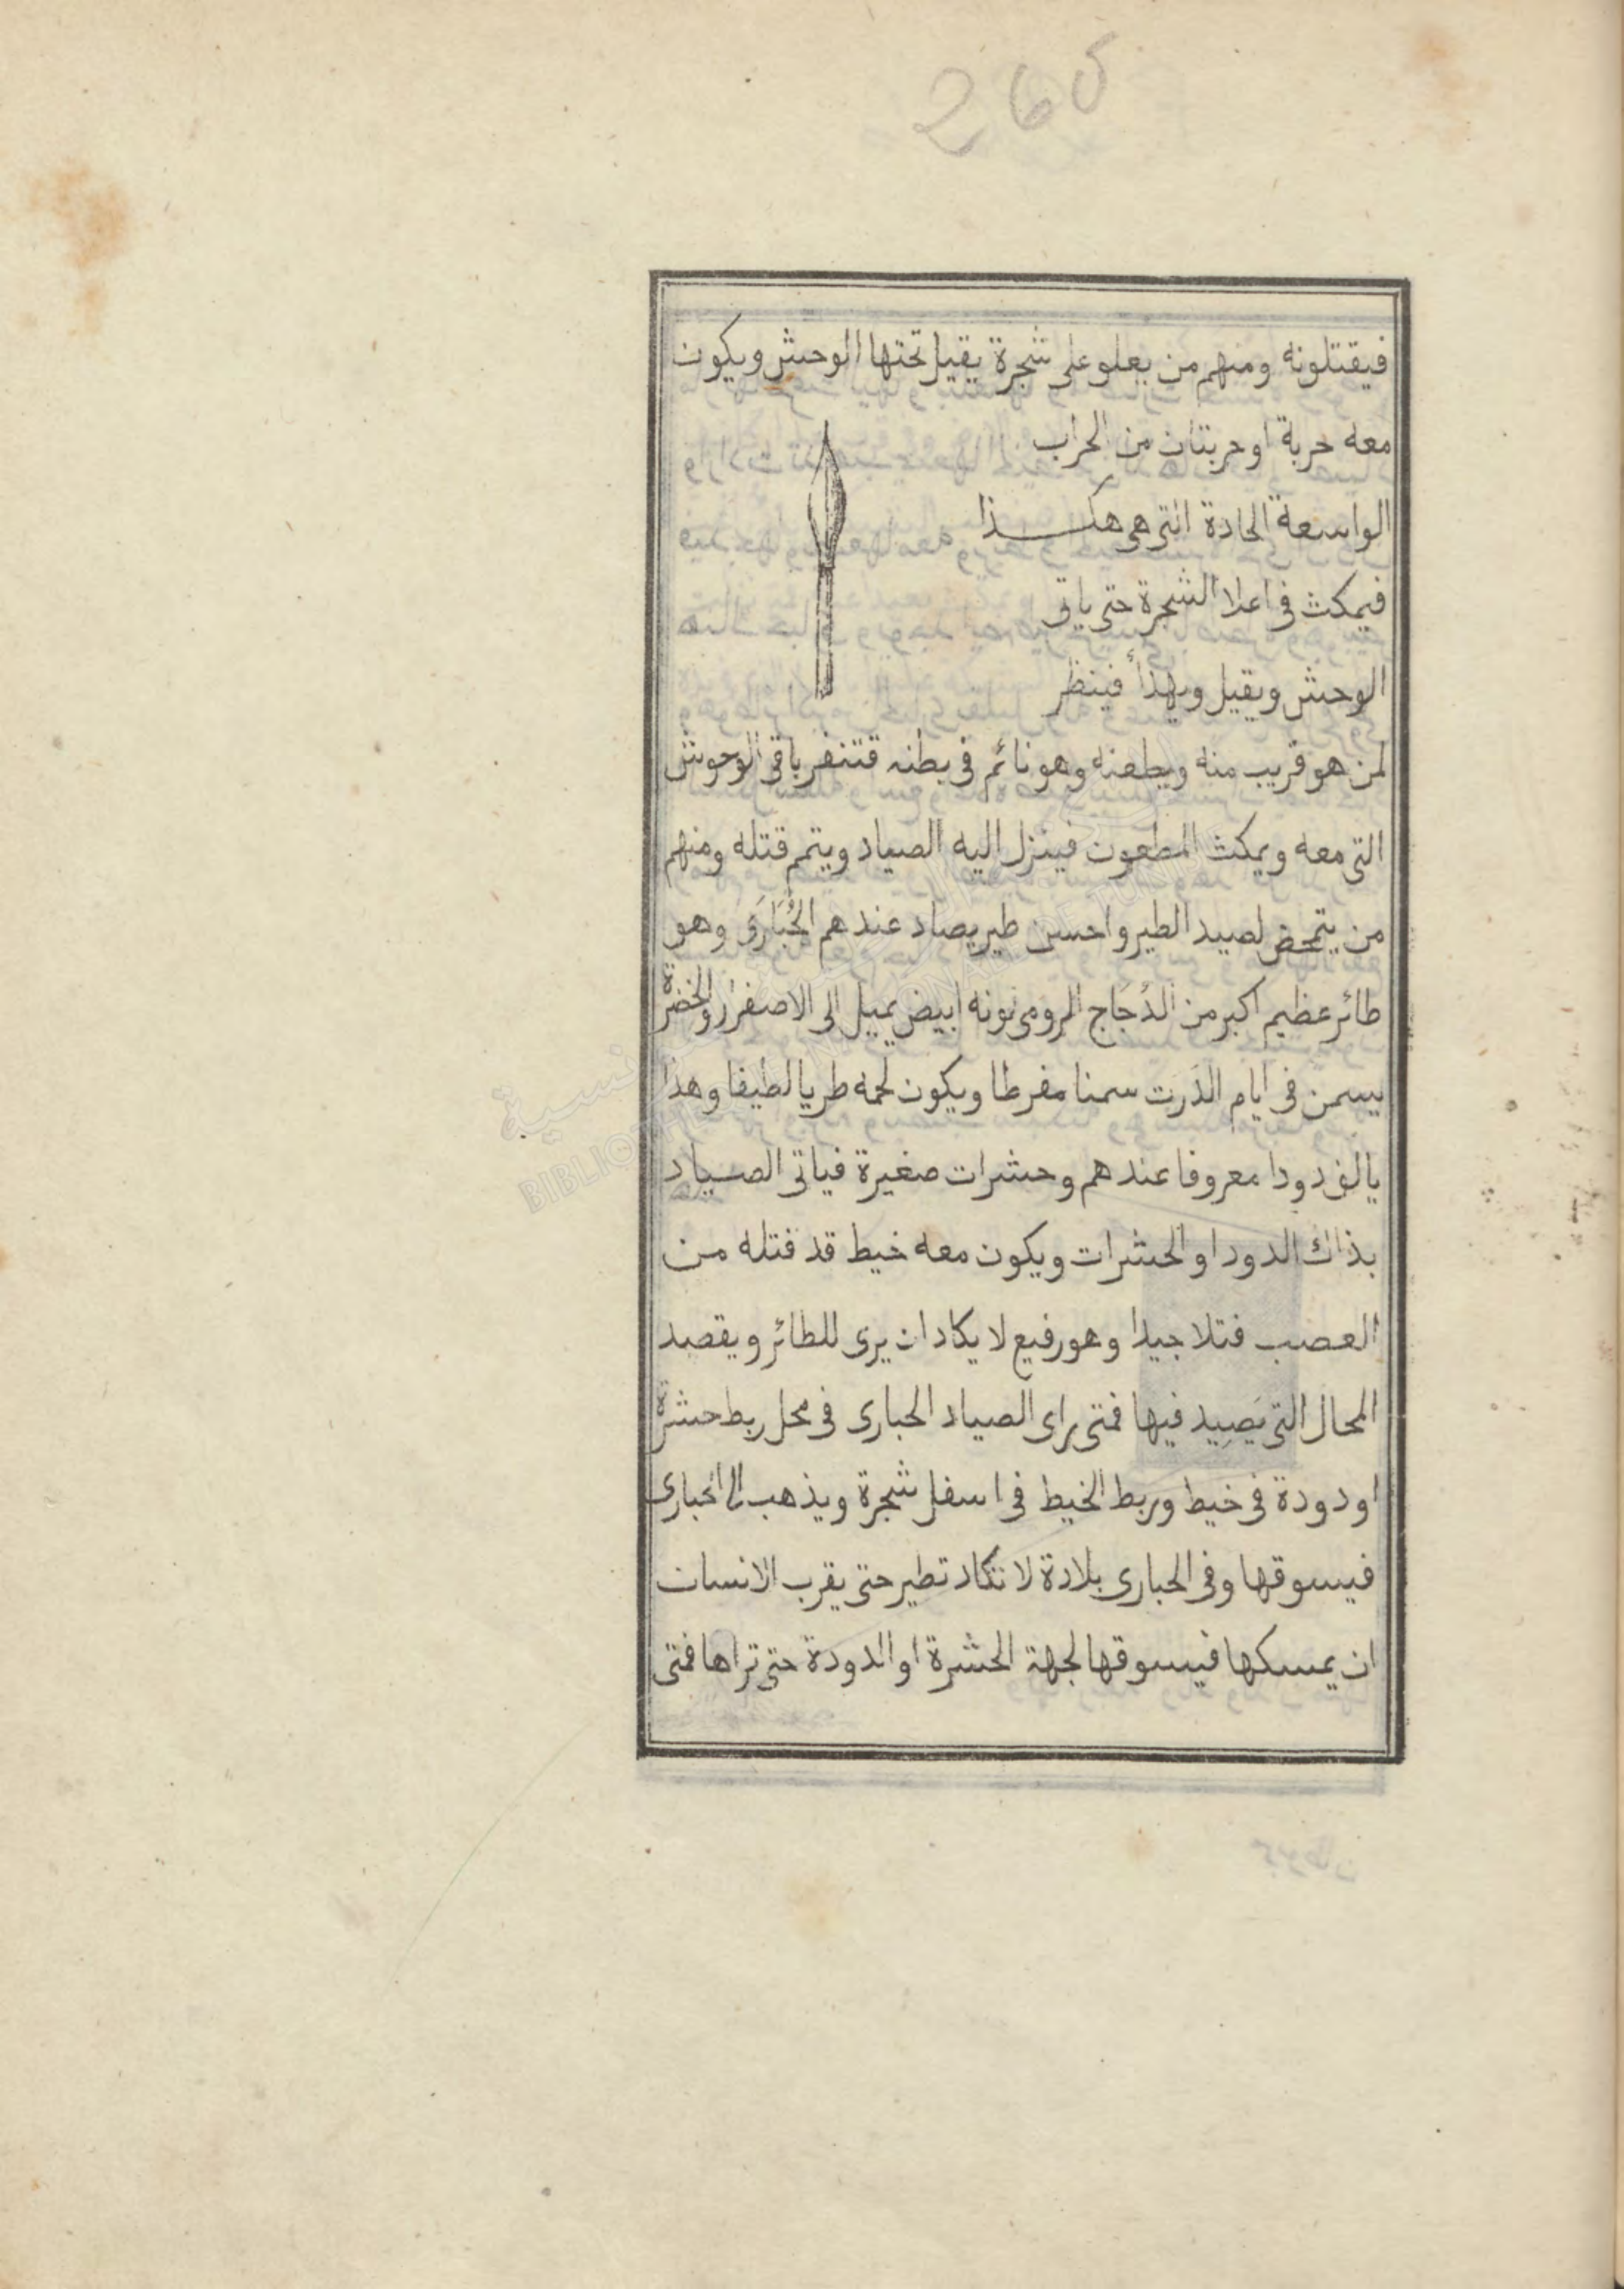 265
فيقتلونه ومنهم من يعلو على شجرة يقيل تحتها الوحش ويكون
معه حربة او حربتان من الحراب
الواسعة الحادة التى هى هكـــذا
فيمكث فى اعلا الشجرة حتى ياتى
الوحش ويقيل ويهدأ فينظر
لمن هو قريب منه ويطعنه وهو نائم فى بطنه فتنفر باقى الوحوش
التى معه ويمكث المطعون فينزل اليه الصياد ويتم قتله ومنهم
من يتمحض لصيد الطير واحسن طير يصاد عندهم الحُبَارَى وهو
طائر عظيم اكبر من الدُجَاج الرومى لونه ابيض يميل الى الاصفرار والخضرة
يسمن فى ايام الدَرَت سمنا مفرطا ويكون لحمه طريا لطيفا وهذا
يالف دودا معروفا عندهم وحشرات صغيرة فياتى الصياد
بذاك الدود او الحشرات ويكون معه خيط قد فتله من
العصب فتلا جيدا وهو رفيع لا يكاد ان يرى للطائر ويقصد
المحال التى يَصِيد فيها فمتى راى الصياد الحبارى فى محل ربط حشرة
او دودة فى خيط وربط الخيط فى اسفل شجرة ويذهب الى الحبارى
فيسوقها وفى الحبارى بلادة لا تكاد تطير حتى يقرب الانسان
ان يمسكها فيسوقها لجهة الحشرة او الدودة حتى تراها فمتى